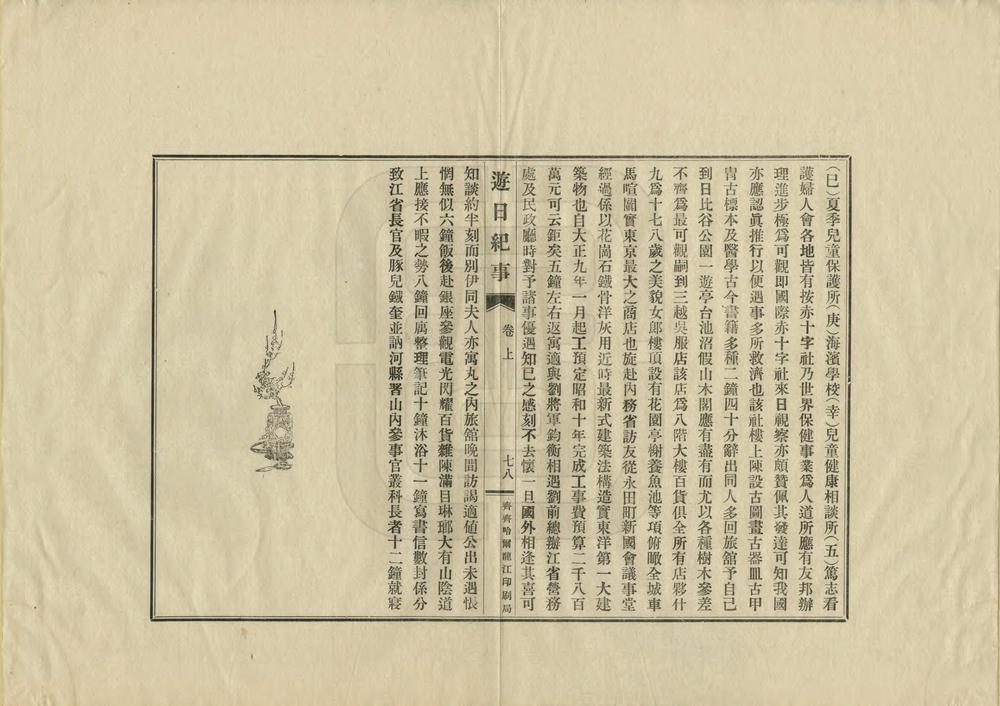 （巳）夏季兒童保護所（庚）海濱學校（幸）兒童健康相談所（五）篤志看
護婦人會各地皆有按赤十字社乃世界保健事業爲人道所應有友邦辦
理進步極爲可觀即國際赤十字社來日視察亦頗贊佩其發達可知我國
亦應認眞推行以便遇事多所救濟也該社樓上陳設古圖畫古器皿古甲
冑古標本及醫學古今書籍多種二鐘四十分辭出同人多回旅舘予自己
到日比谷公園一遊亭台池沼假山木閣應有盡有而尤以各種樹木參差
不齊爲最可觀嗣到三越吳服店該店爲八階大樓百貨俱全所有店夥什
九爲十七八歲之美貌女郎樓頂設有花園亭榭養魚池等項俯瞰全城車
馬喧闐實東京最大之商店也旋赴內務省訪友從永田町新國會議事堂
經過係以花崗石鐵骨洋灰用近時最新式建築法構造實東洋第一大建
築物也自大正九年一月起工預定昭和十年完成工事費預算二千八百
萬元可云鉅矣五鐘左右返寓適與劉將軍鈞衡相遇劉前總辦江省營務
處及民政廳時對予諸事優遇知已之感刻不去懷一旦國外相逢其喜可
遊日紀事 卷上 七八 齊齊哈爾龍江印刷局
知談約半刻而別伊同夫人亦寓丸之內旅舘晚間訪謁適值公出未遇悵
惘無似六鐘飯後赴銀座參觀電光閃耀百貨雜陳滿目琳瑯大有山陰道
上應接不暇之勢八鐘回寓整理筆記十鐘沐浴十一鐘寫書信數封係分
致江省長官及豚兒鐵奎並訥河縣署山內參事官叢科長者十二鐘就寢